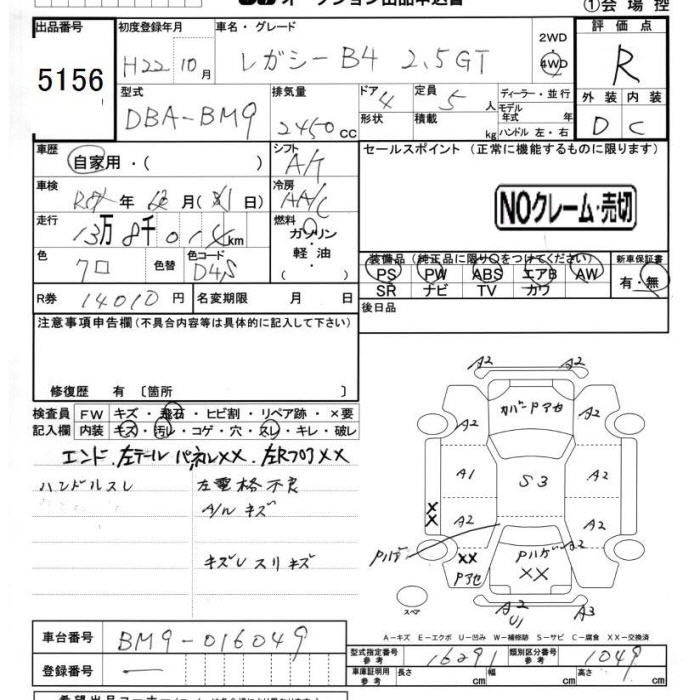 オークション出品申込書
①会場控
出品番号 5156
初度登録年月 H22 10月
車名・グレード レガシーB4 2.5GT
2WD 4WD
評価点 R
外装 D 内装 C
型式 DBA-BM9
排気量 2450 CC
ドア 4 形状
定員 5 人 積載 kg
ディーラー・並行
モデル年式 年式
ハンドル 左・右
車歴 自家用・( )
シフト A/T
セールスポイント (正常に機能するものに限ります)
車検 年 月( 日)
冷房 AA/C
NOクレーム・売切
走行 13万8千014km
燃料 ガソリン・軽油・( )
色 クロ 色替 色コード D4S
装備品(純正品に限り○をつけてください)
PS PW ABS エアB AW
SR ナビ TV カワ
新車保証書 有・無
R券 14010円 名変期限 月 日
後日品
注意事項申告欄(不具合内容等は具体的に記入して下さい)
修復歴 有 〔箇所 〕
検査員記入欄 FW キズ・飛石・ヒビ割・リペア跡・×要
内装 キズ・汚レ・コゲ・穴・スレ・キレ・破レ
エンド、左テールパネルXX、左RフロアXX
ハンドルスレ 左電格不良
A/Wキズ
キズUスリキズ
A2 A2
カバードアセ
A2 A2
A1 S3 A2
XX A2 A2
Pハゲ XX Pハゲ A2
Pアセ XX
スペア A2 U1 A3
A-キズ E-エクボ U-凹み W-補修跡 S-サビ C-腐食 XX-交換済
車台番号 BM9-016049
型式指定番号 参考 16291 類別区分番号 参考 1049
登録番号 —
車庫証明用 参考 長さ cm 幅 cm 高さ cm